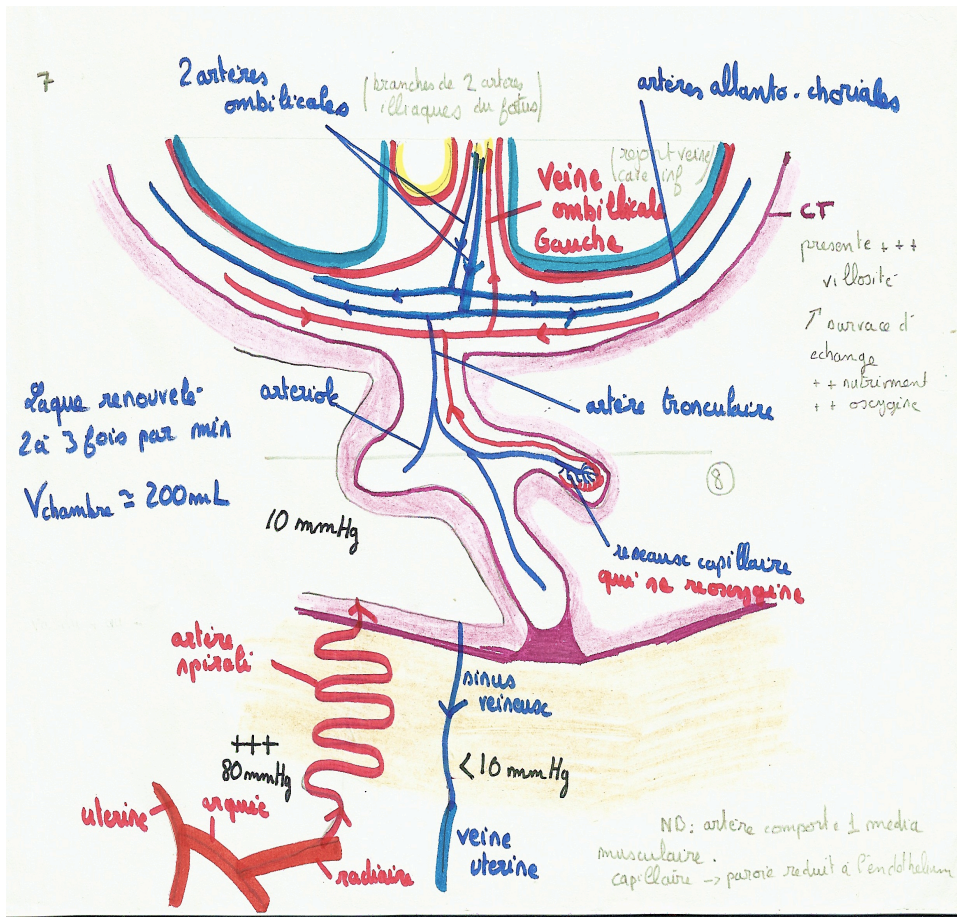 7
2 artères
ombilicales
(branches de 2 artères
illiaques du fœtus)
artères allanto-choriales
(rejoint veine
cave inf)
Veine
ombillicale
Gauche
CT
presente +++
villosité
↑ survace d'
echange
++ nutriment
++ oxygine
Laque renouvelé
2 à 3 fois par min
Vchambre ≃ 200mL
arteriole
artère tronculaire
8
10 mmHg
reseaux capillaire
qui se reoxygine
artère
spiralé
sinus
veineux
+++
80mmHg
<10 mmHg
uterine
arquée
radiaire
veine
uterine
NB: artère comporte 1 media
musculaire.
capillaire → paroie reduit à l'endothelium